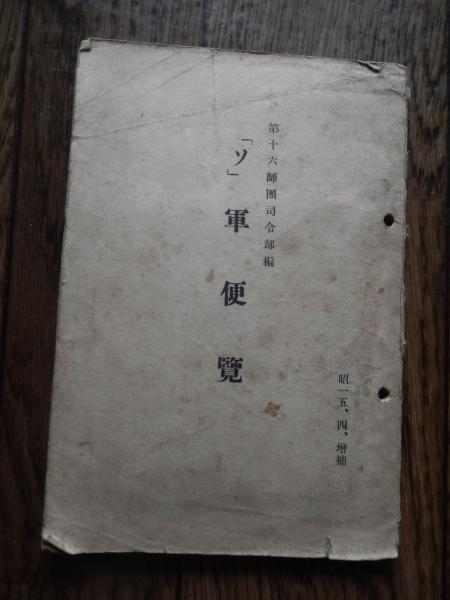 昭一五、四、增補
第十六師團司令部編
「ソ」軍便覽